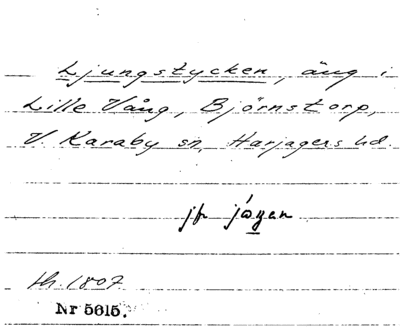 Ljungstycken, äng i
Lille Vång, Björnstorp,
V. Karaby sn, Harjagers hd.
jfr
1807
Nr 5615.